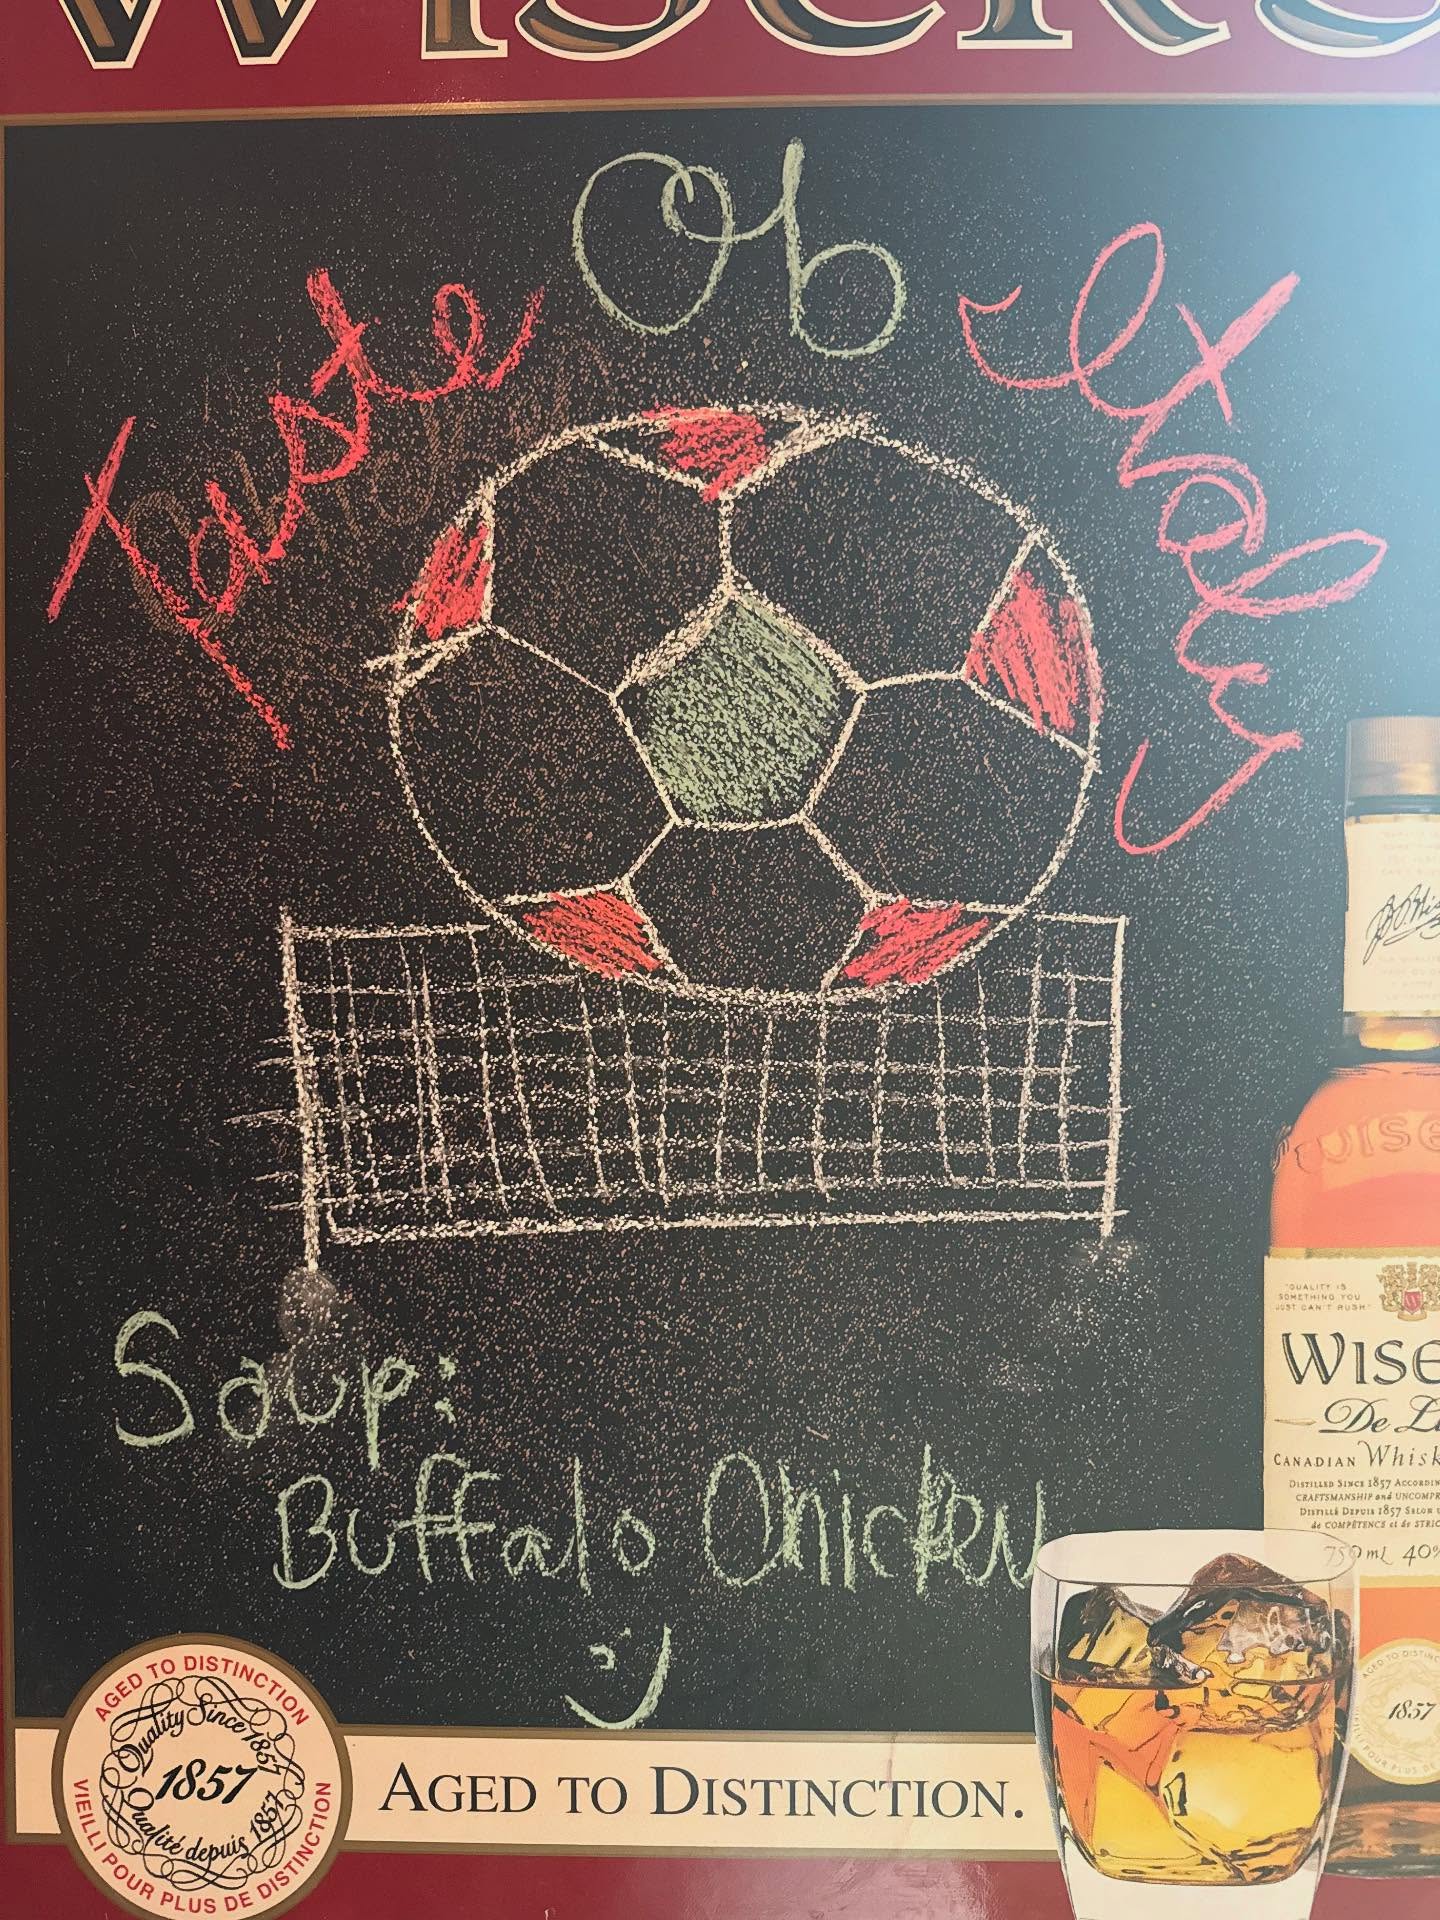 WISERS
Taste Of Italy
Soup:
Buffalo Chicken
"QUALITY IS
SOMETHING YOU
JUST CAN'T RUSH"
WISE
De Lu
CANADIAN Whisk
DISTILLED SINCE 1857 ACCORDIN
CRAFTSMANSHIP and UNCOMPR
DISTILLÉ DEPUIS 1857 SELON
de COMPÉTENCE et de STRIC
750 mL 40%
AGED TO DISTINCTION
Quality Since 1857
1857
Qualité depuis 1857
VIEILLI POUR PLUS DE DISTINCTION
AGED TO DISTINCTION.
1857